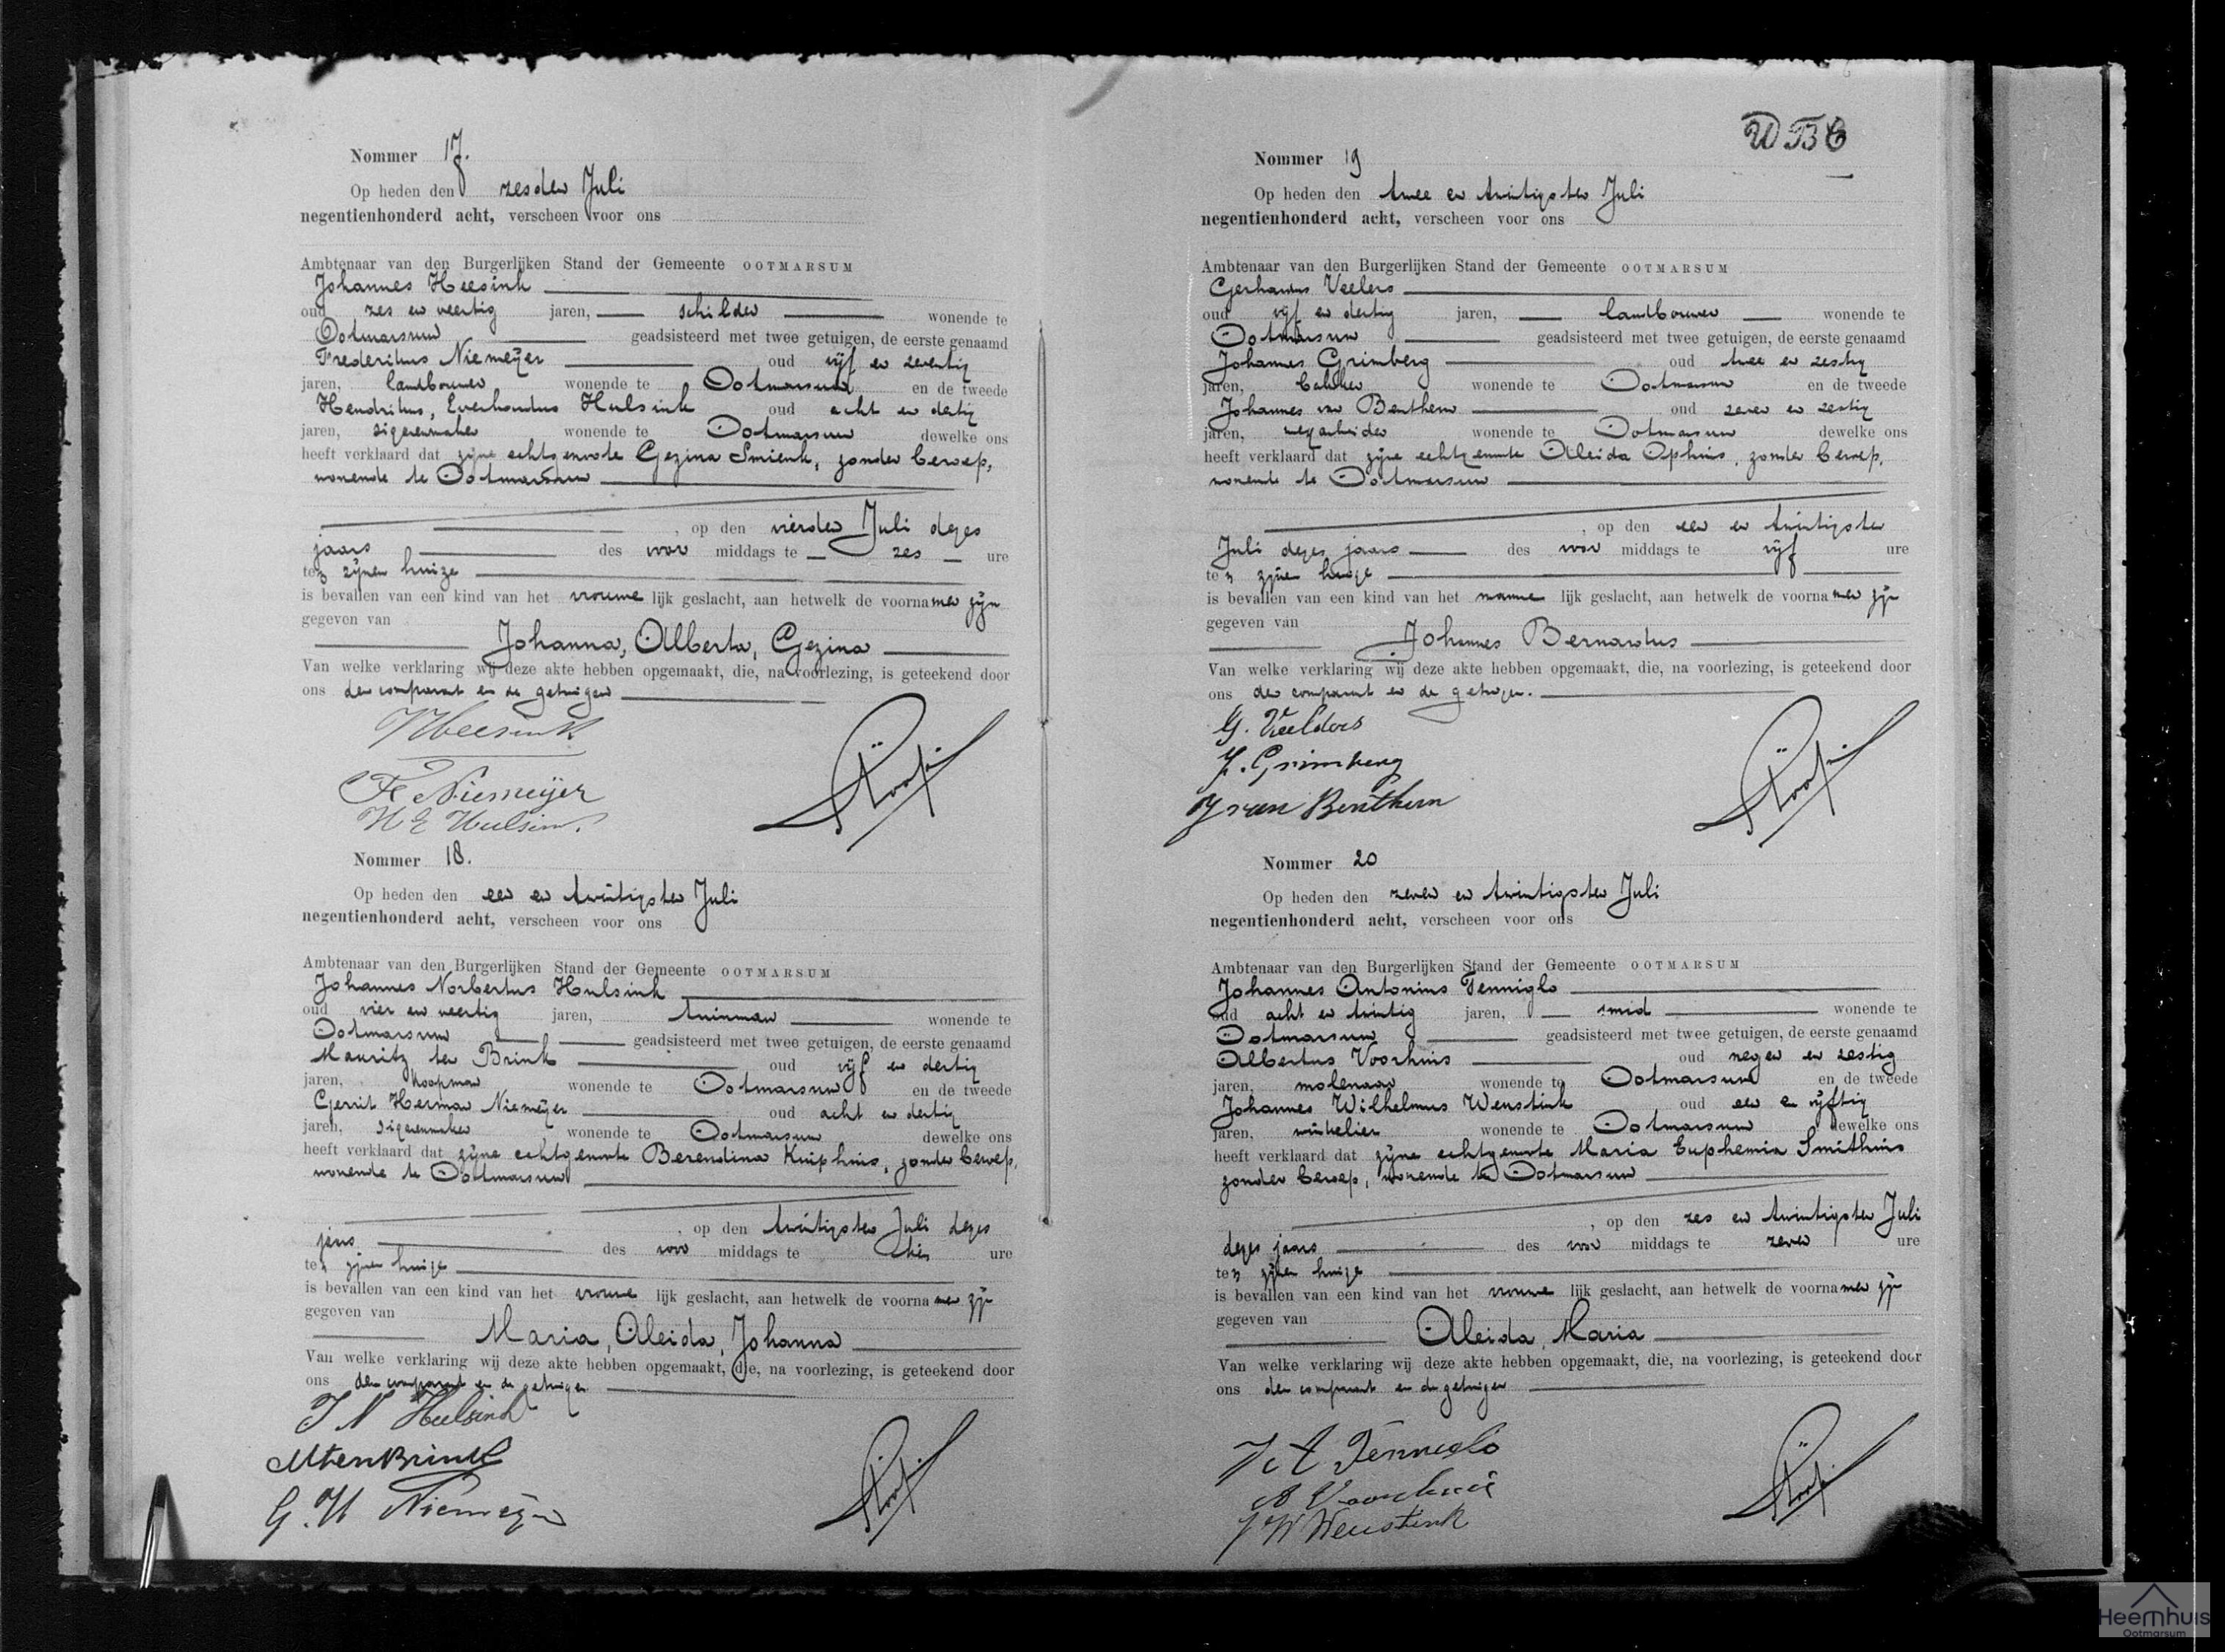 Nommer 17.
Op heden den zesden Juli
negentienhonderd acht, verscheen voor ons
Ambtenaar van den Burgerlijken Stand der Gemeente OOTMARSUM
Johannes Heesink
oud zes en veertig jaren, schilder wonende te
Ootmarsum geadsisteerd met twee getuigen, de eerste genaamd
Frederikus Niemeijer oud vijf en zeventig
jaren, landbouwer wonende te Ootmarsum en de tweede
Hendrikus, Everhardus Hulsink oud acht en dertig
jaren, sigarenmaker wonende te Ootmarsum dewelke ons
heeft verklaard dat zijne echtgenoote Gezina Smienk, zonder beroep,
wonende te Ootmarsum
, op den vierden Juli dezes
jaars des voor middags te zes ure
ten zijnen huize
is bevallen van een kind van het vrouwe lijk geslacht, aan hetwelk de voornamen zijn
gegeven van
Johanna, Alberta, Gezina
Van welke verklaring wij deze akte hebben opgemaakt, die, na voorlezing, is geteekend door
ons den comparant en de getuigen
JHeesink
F Niemeijer
H E Hulsink
Nommer 18.
Op heden den een en twintigsten Juli
negentienhonderd acht, verscheen voor ons
Ambtenaar van den Burgerlijken Stand der Gemeente OOTMARSUM
Johannes Norbertus Hulsink
oud vier en veertig jaren, tuinman wonende te
Ootmarsum geadsisteerd met twee getuigen, de eerste genaamd
Mauritz ten Brink oud vijf en dertig
jaren, koopman wonende te Ootmarsum en de tweede
Gerrit Herman Niemeijer oud acht en dertig
jaren, sigarenmaker wonende te Ootmarsum dewelke ons
heeft verklaard dat zijne echtgenoote Berendina Kuiphuis, zonder beroep,
wonende te Ootmarsum
, op den twintigsten Juli dezes
jaars des voor middags te tien ure
ten zijnen huize
is bevallen van een kind van het vrouwe lijk geslacht, aan hetwelk de voornamen zijn
gegeven van
Maria, Aleida, Johanna
Van welke verklaring wij deze akte hebben opgemaakt, die, na voorlezing, is geteekend door
ons den comparant en de getuigen
J N Hulsink
MtenBrink
G. H Niemeijer
WBC
Nommer 19
Op heden den twee en twintigsten Juli
negentienhonderd acht, verscheen voor ons
Ambtenaar van den Burgerlijken Stand der Gemeente OOTMARSUM
Gerhardus Veelers
oud vijf en dertig jaren, landbouwer wonende te
Ootmarsum geadsisteerd met twee getuigen, de eerste genaamd
Johannes Grimberg oud twee en zestig
jaren, bakker wonende te Ootmarsum en de tweede
Johannes van Benthem oud zeven en zestig
jaren, wegarbeider wonende te Ootmarsum dewelke ons
heeft verklaard dat zijne echtgenoote Aleida Ophuis, zonder beroep,
wonende te Ootmarsum
, op den een en twintigsten
Juli dezes jaars des voor middags te vijf ure
ten zijnen huize
is bevallen van een kind van het manne lijk geslacht, aan hetwelk de voornamen zijn
gegeven van
Johannes Bernardus
Van welke verklaring wij deze akte hebben opgemaakt, die, na voorlezing, is geteekend door
ons den comparant en de getuigen.
G. Veelders
J. Grimberg
J van Benthem
Nommer 20
Op heden den zeven en twintigsten Juli
negentienhonderd acht, verscheen voor ons
Ambtenaar van den Burgerlijken Stand der Gemeente OOTMARSUM
Johannes Antonius Tenniglo
oud acht en twintig jaren, smid wonende te
Ootmarsum geadsisteerd met twee getuigen, de eerste genaamd
Albertus Voorhuis oud negen en zestig
jaren, molenaar wonende te Ootmarsum en de tweede
Johannes Wilhelmus Weustink oud een en vijftig
jaren, winkelier wonende te Ootmarsum dewelke ons
heeft verklaard dat zijne echtgenoote Maria Euphemia Smithuis
zonder beroep, wonende te Ootmarsum
, op den zes en twintigsten Juli
dezes jaars des voor middags te zeven ure
ten zijnen huize
is bevallen van een kind van het vrouwe lijk geslacht, aan hetwelk de voornamen zijn
gegeven van
Aleida, Maria
Van welke verklaring wij deze akte hebben opgemaakt, die, na voorlezing, is geteekend door
ons den comparant en de getuigen
J A Tenniglo
A Voorhuis
J W Weustink
Heemhuis
Ootmarsum